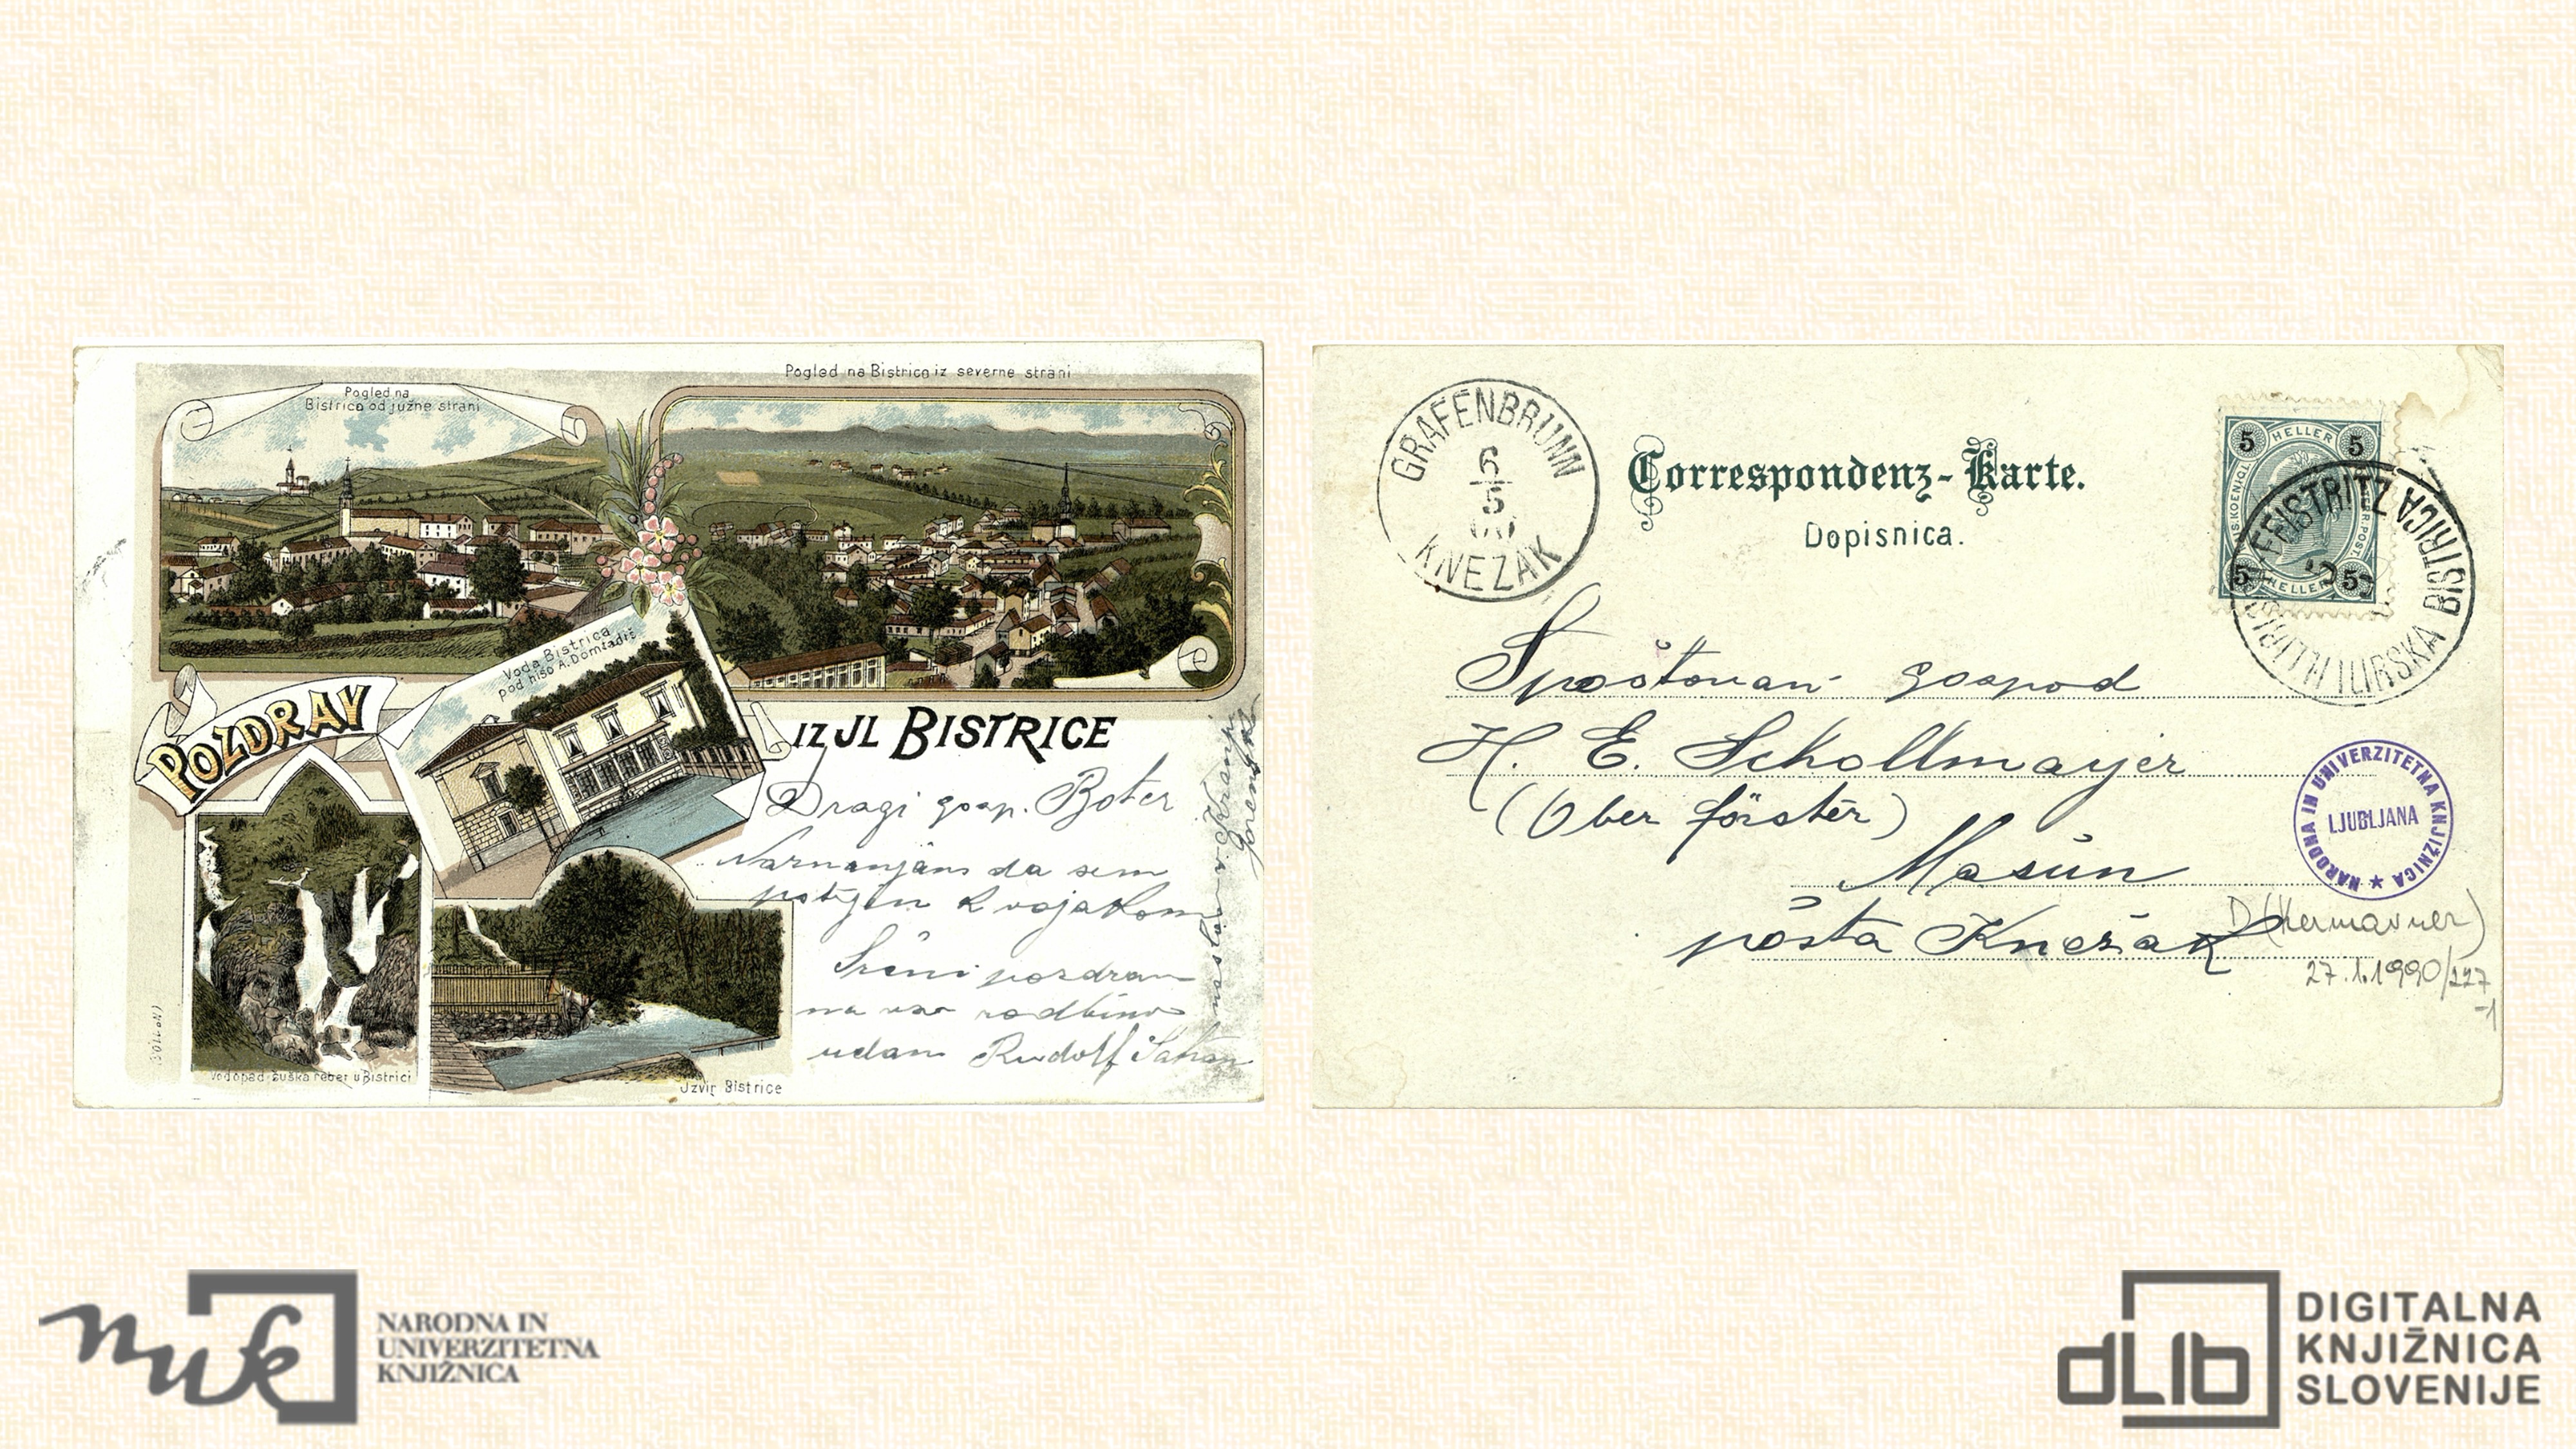 Pogled na Bistrico iz severne strani
Pogled na
Bistrico od južne strani
Voda Bistrica
pod hišo A. Domladiš
POZDRAV
IZ JL BISTRICE
Dragi gosp. Boter
Naznanjam da sem
potrjen k vojakom
Srčni pozdrav
na vso rodbino
udani Rudolf
naslov
Kranj
Gorensko
Vodopad Suška reber u Bistrici
Jzvir Bistrice
GRAFENBRUNN
6
5
00
KNEZAK
Correspondenz-Karte.
Dopisnica.
5 HELLER 5
5 HELLER 5
FEISTRITZ
ILIRSKA BISTRICA
Spoštovani gospod
H. E. Schollmayer
(Oberförster)
Masun
pošta Knežak
NARODNA IN UNIVERZITETNA KNJIŽNICA ★
LJUBLJANA
D (Hermavner)
27.1.1990/127
-1
nuk
NARODNA IN
UNIVERZITETNA
KNJIŽNICA
dLib
DIGITALNA
KNJIŽNICA
SLOVENIJE